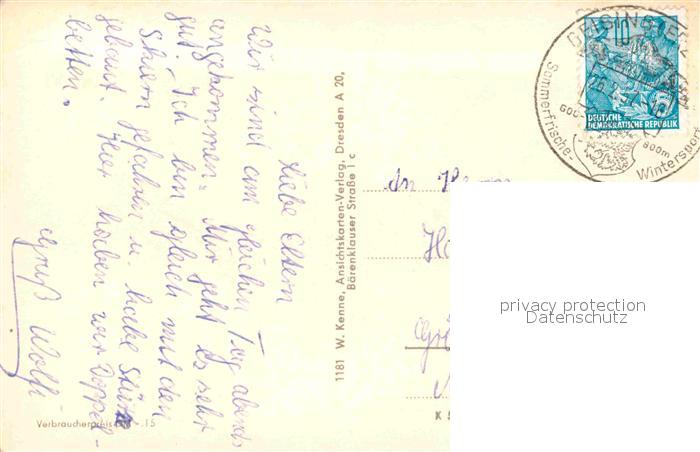 Liebe Eltern
Wir sind am gleichen Tag abends
angekommen. Mir geht es sehr
gut! Ich bin gleich mit den
gefahren u. habe
gebaut. Hier haben wir Doppel-
betten.
Gruß Wolfi
Verbraucherpreis DM -.15
1181 W. Kenne, Ansichtskarten-Verlag, Dresden A 20,
Bärenklauser Straße 1 c
GEISING
10
DEUTSCHE
DEMOKRATISCHE REPUBLIK
Sommerfrische-
600-
800m
Wintersport
An
K 5
privacy protection
Datenschutz